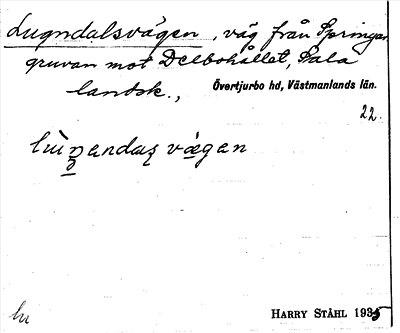 Lugndalsvägen, väg från Springar
gruvan mot Delbohållet, Sala
landsk., Övertjurbo hd, Västmanlands län.
22.
vägan
hu
HARRY STÅHL 1935